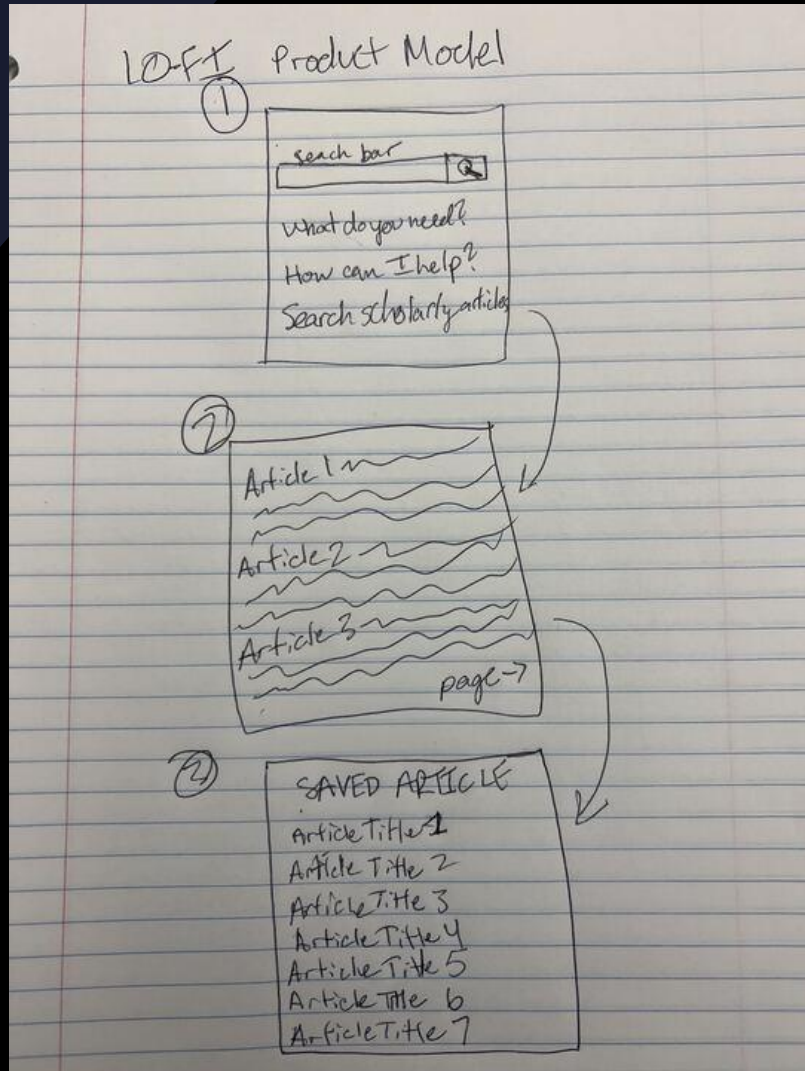 LO-FI Product Model
1
seach bar
What do you need?
How can I help?
Search scholarly articles
2
Article 1
Article 2
Article 3
page →
2
SAVED ARTICLE
Article Title 1
Article Title 2
Article Title 3
Article Title 4
Article Title 5
Article Title 6
Article Title 7